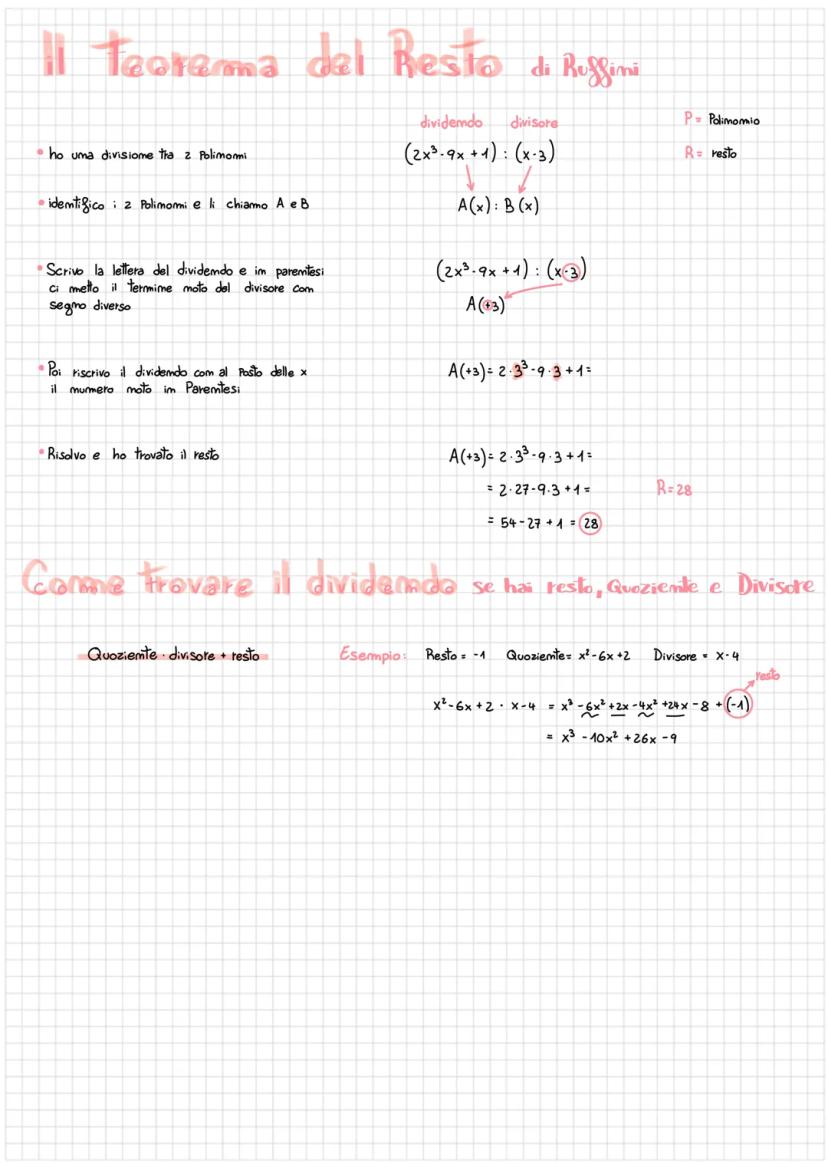 Il Teorema del Resto di Ruffini
dividendo divisore
P = Polinomio
• ho una divisione tra 2 Polinomi
(2x³-9x+1) : (x-3)
R = resto
• identifico i 2 Polinomi e li chiamo A e B
A(x) : B(x)
• Scrivo la lettera del dividendo e in parentesi
ci metto il termine noto del divisore con
segno diverso
(2x³-9x+1) : (x-3)
A(+3)
• Poi riscrivo il dividendo con al posto delle x
il numero noto in Parentesi
A(+3) = 2·3³-9·3+1=
• Risolvo e ho trovato il resto
A(+3) = 2·3³-9·3+1=
= 2·27-9·3+1=
R=28
= 54-27+1 = 28
Come trovare il dividendo se hai resto, Quoziente e Divisore
Quoziente · divisore + resto
Esempio: Resto = -1 Quoziente = x²-6x+2 Divisore = x-4
resto
x²-6x+2 · x-4 = x³-6x²+2x-4x²+24x-8+(-1)
= x³-10x²+26x-9